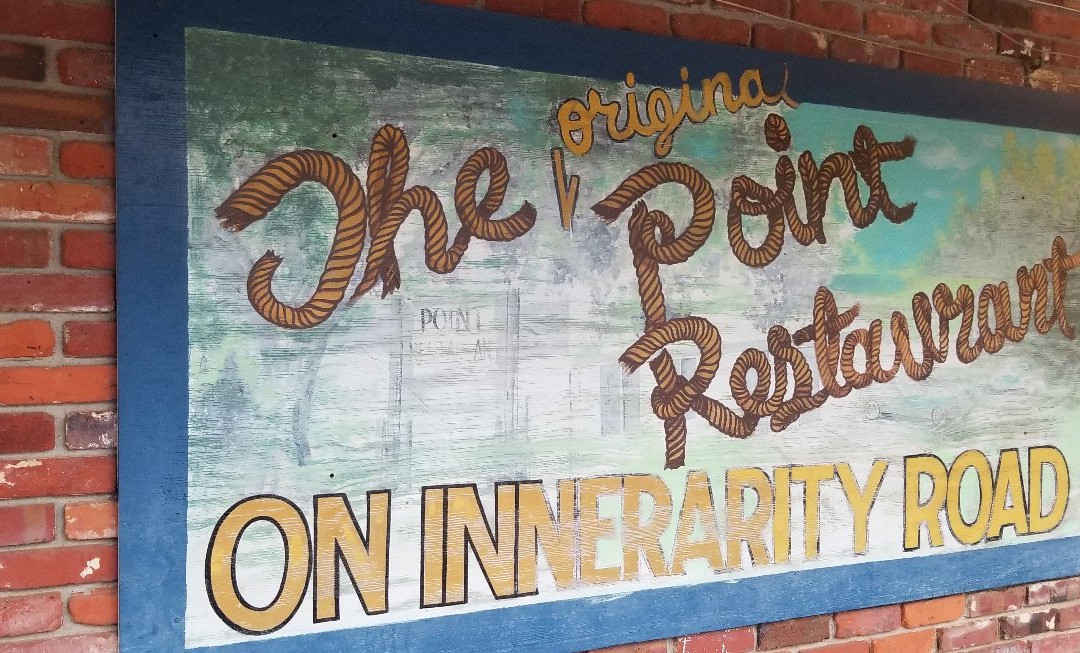 The original Point
Restaurant
POINT
ON INNERARITY ROAD